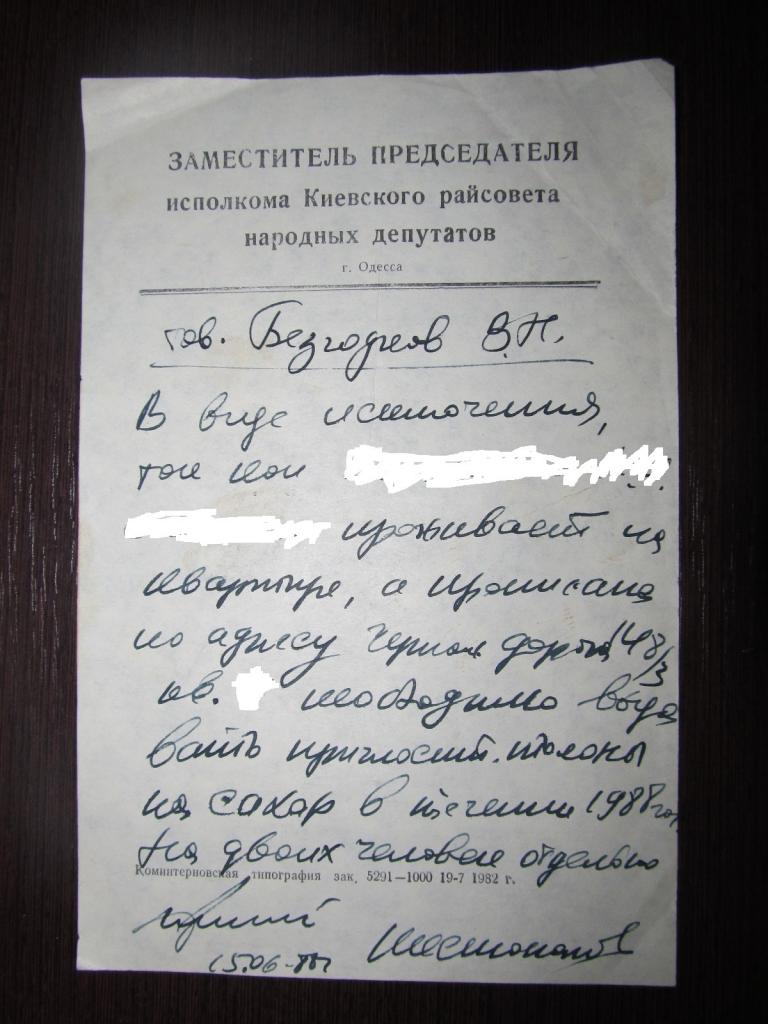 ЗАМЕСТИТЕЛЬ ПРЕДСЕДАТЕЛЯ
исполкома Киевского райсовета
народных депутатов
г. Одесса
тов. Безгодков В.Н.
В виде исключения,
так как
проживает на
квартире, а прописана
по адресу Черном. дорога 148/3
кв. необходимо выда
вать приглосит. талоны
на сахар в течении 1988 год.
На двоих человек отдельно
Коминтерновская типография зак. 5291—1000 19-7 1982 г.
15.06-88